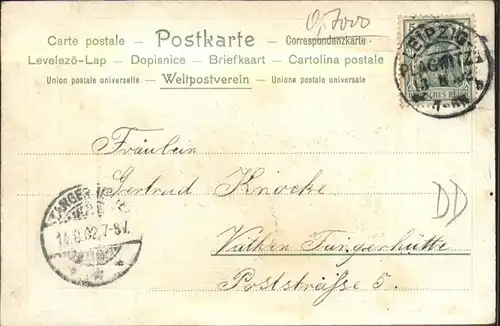 0,7000
Carte postale — Postkarte — Correspondenzkarte
Levelező-Lap — Dopisnice — Briefkaart — Cartolina postale
Union postale universelle — Weltpostverein — Unione postale universale
LEIPZIG
Fräulein
Gertrud Knocke
DD
14.8.02.7-8V.
Väthen Tangerhütte
Poststraße 5.